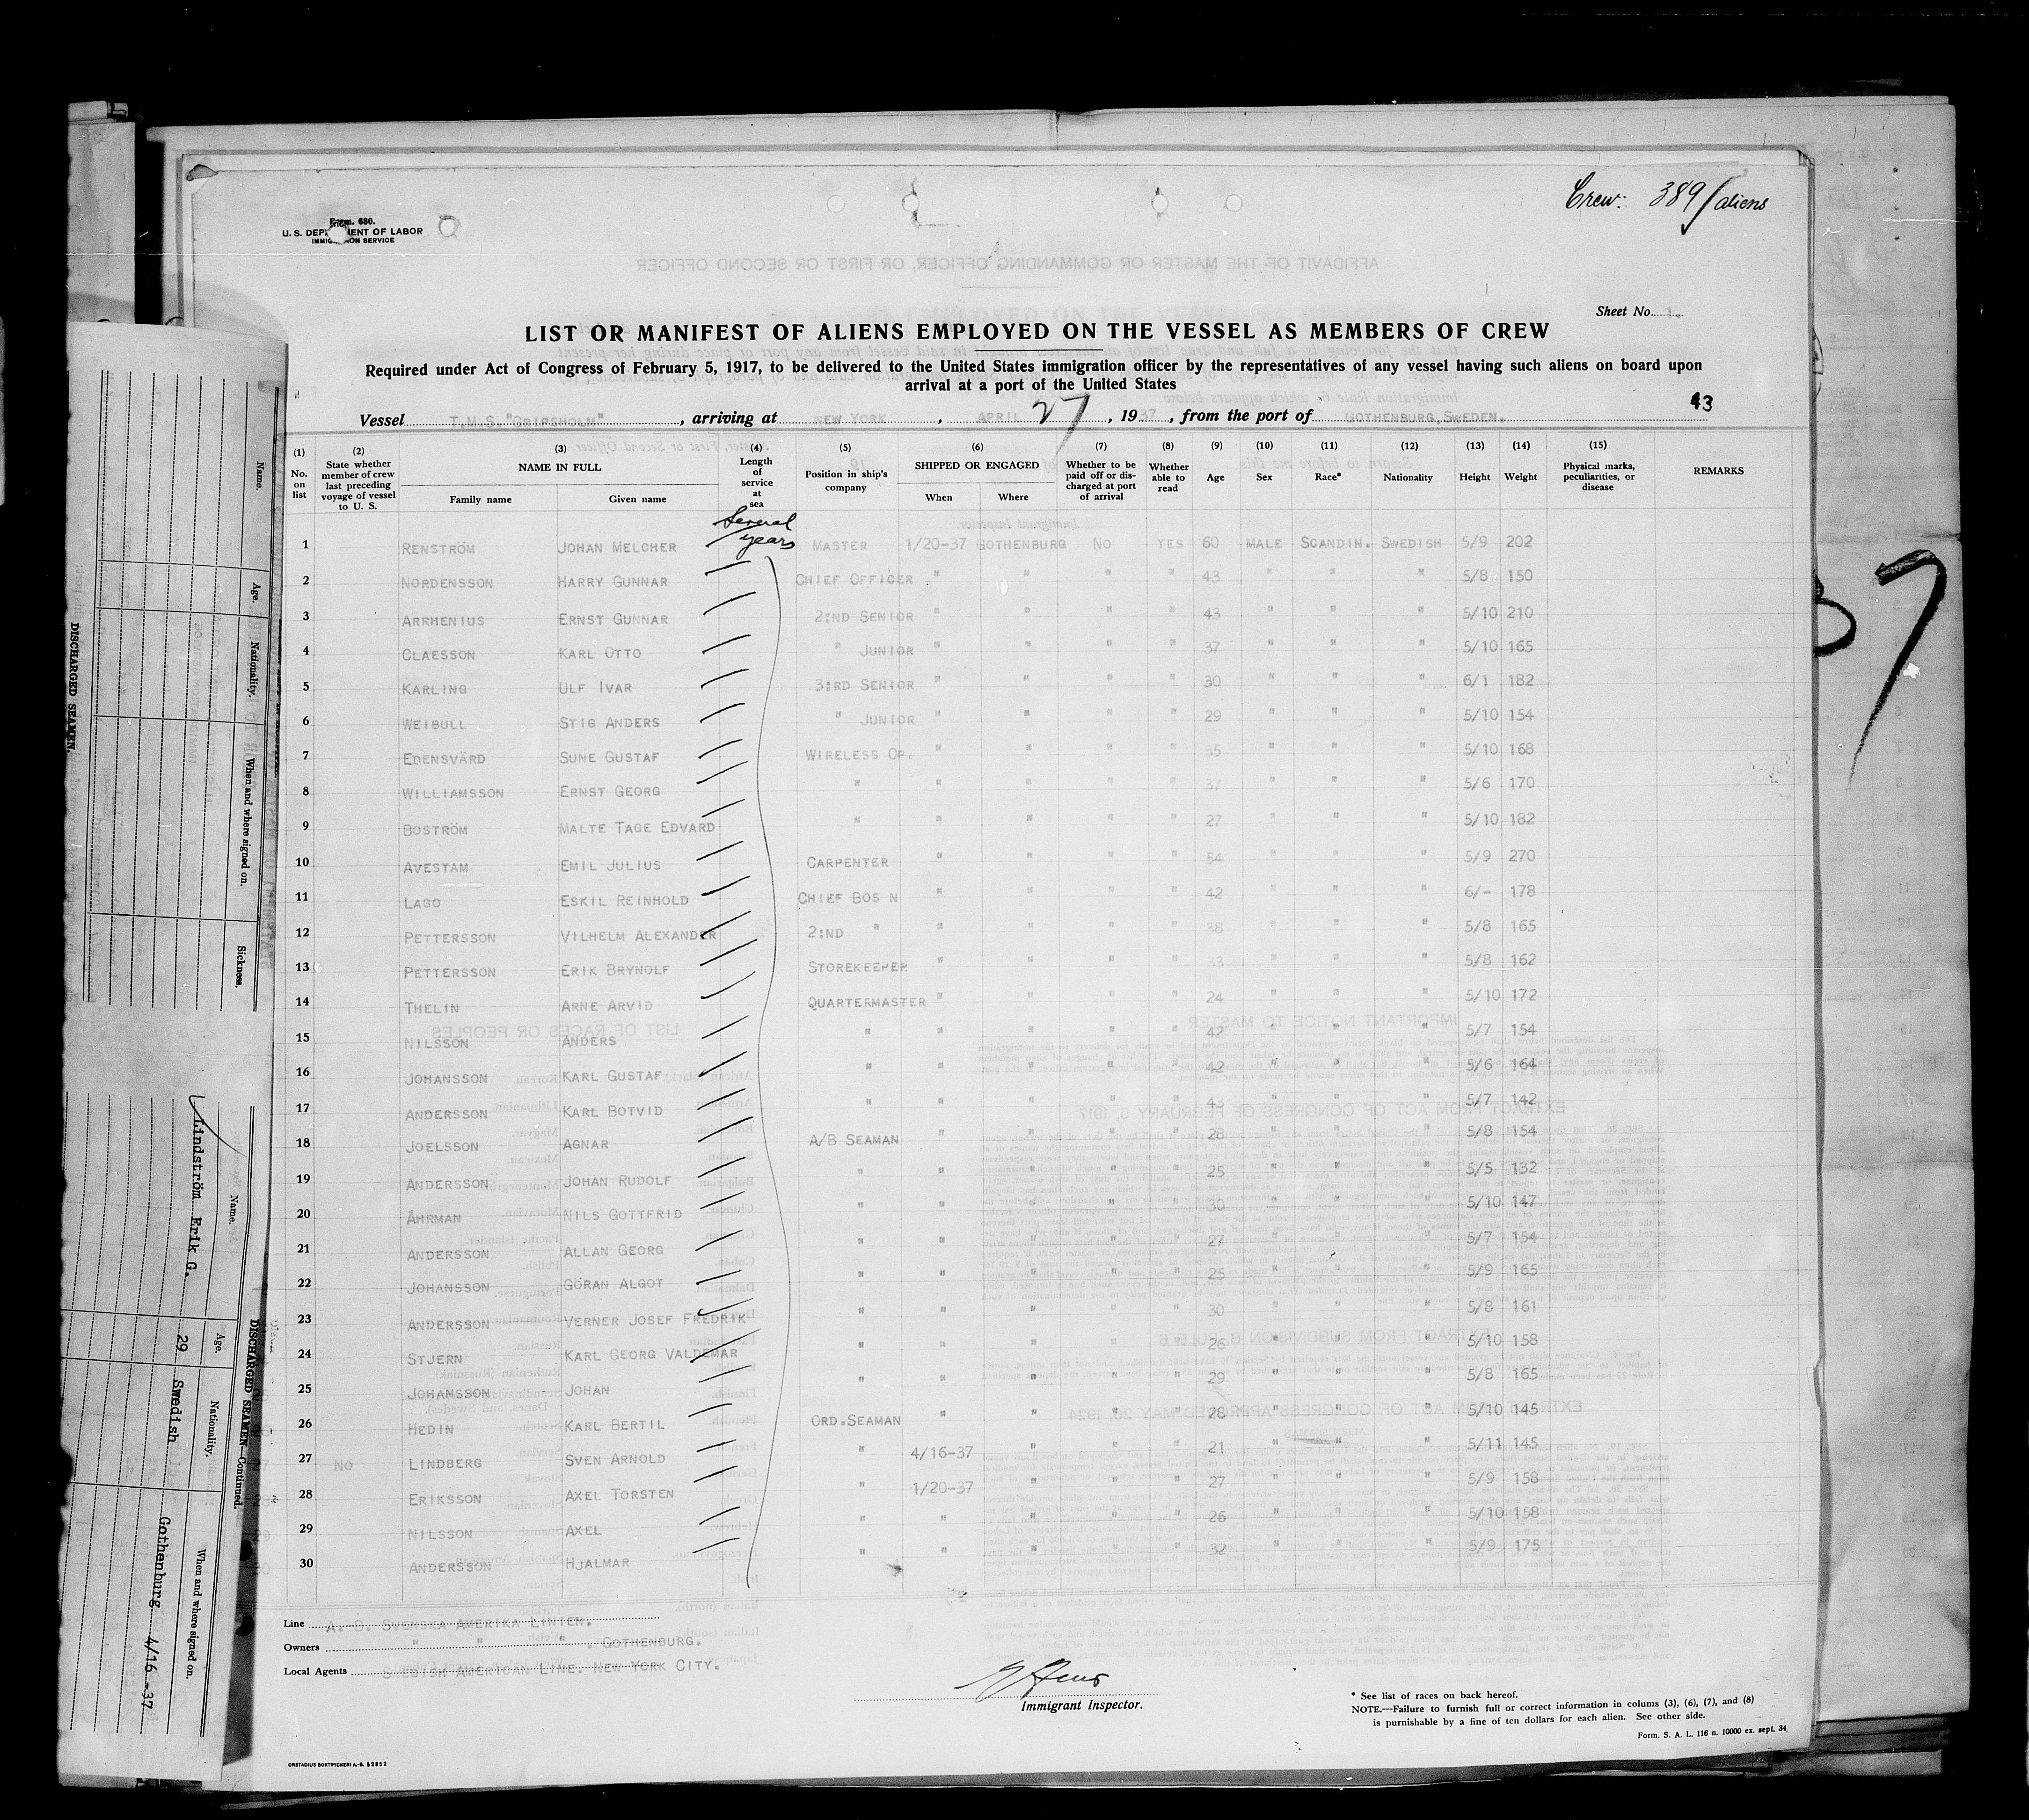 Crew: 389/aliens
Form. 680.
U. S. DEPARTMENT OF LABOR
IMMIGRATION SERVICE
Sheet No. 1.
LIST OR MANIFEST OF ALIENS EMPLOYED ON THE VESSEL AS MEMBERS OF CREW
Required under Act of Congress of February 5, 1917, to be delivered to the United States immigration officer by the representatives of any vessel having such aliens on board upon
arrival at a port of the United States
43
Vessel T.M.S. "GRIPSHOLM", arriving at NEW YORK, APRIL 27, 1937, from the port of GOTHENBURG, SWEDEN.
(1) No. on list (2) State whether member of crew last preceding voyage of vessel to U. S. (3) NAME IN FULL Family name Given name (4) Length of service at sea (5) Position in ship's company (6) SHIPPED OR ENGAGED When Where (7) Whether to be paid off or discharged at port of arrival (8) Whether able to read (9) Age (10) Sex (11) Race* (12) Nationality (13) Height (14) Weight (15) Physical marks, peculiarities, or disease REMARKS
1 RENSTRÖM JOHAN MELCHER Several years MASTER 1/20-37 GOTHENBURG NO YES 60 MALE SCANDIN. SWEDISH 5/9 202
2 NORDENSSON HARRY GUNNAR CHIEF OFFICER " " " " 43 " " " 5/8 150
3 ARRHENIUS ERNST GUNNAR 2:ND SENIOR " " " " 43 " " " 5/10 210
4 CLAESSON KARL OTTO " JUNIOR " " " " 37 " " " 5/10 165
5 KARLING ULF IVAR 3:RD SENIOR " " " " 30 " " " 6/1 182
6 WEIBULL STIG ANDERS " JUNIOR " " " " 29 " " " 5/10 154
7 EDENSVÄRD SUNE GUSTAF WIRELESS OP. " " " " 35 " " " 5/10 168
8 WILLIAMSSON ERNST GEORG " " " " " 37 " " " 5/6 170
9 BOSTRÖM MALTE TAGE EDVARD " " " " " 27 " " " 5/10 182
10 AVESTAM EMIL JULIUS CARPENTER " " " " 54 " " " 5/9 270
11 LAGO ESKIL REINHOLD CHIEF BOS N " " " " 42 " " " 6/- 178
12 PETTERSSON VILHELM ALEXANDER 2:ND " " " " " 38 " " " 5/8 165
13 PETTERSSON ERIK BRYNOLF STOREKEEPER " " " " 33 " " " 5/8 162
14 THELIN ARNE ARVID QUARTERMASTER " " " " 24 " " " 5/10 172
15 NILSSON ANDERS " " " " " 42 " " " 5/7 154
16 JOHANSSON KARL GUSTAF " " " " " 42 " " " 5/6 164
17 ANDERSSON KARL BOTVID " " " " " 43 " " " 5/7 142
18 JOELSSON AGNAR A/B SEAMAN " " " " 28 " " " 5/8 154
19 ANDERSSON JOHAN RUDOLF " " " " " 25 " " " 5/5 132
20 ÅHRMAN NILS GOTTFRID " " " " " 30 " " " 5/10 147
21 ANDERSSON ALLAN GEORG " " " " " 27 " " " 5/7 154
22 JOHANSSON GÖRAN ALGOT " " " " " 25 " " " 5/9 165
23 ANDERSSON VERNER JOSEF FREDRIK " " " " " 30 " " " 5/8 161
24 STJERN KARL GEORG VALDEMAR " " " " " 26 " " " 5/10 158
25 JOHANSSON JOHAN " " " " " 29 " " " 5/8 165
26 HEDIN KARL BERTIL ORD.SEAMAN " " " " 28 " " " 5/10 145
27 NO LINDBERG SVEN ARNOLD " 4/16-37 " " " 21 " " " 5/11 145
28 ERIKSSON AXEL TORSTEN " 1/20-37 " " " 27 " " " 5/9 158
29 NILSSON AXEL " " " " " 26 " " " 5/10 158
30 ANDERSSON HJALMAR " " " " " 32 " " " 5/9 175
Line A. B. SVENSKA AMERIKA LINIEN.
Owners " " " , GOTHENBURG.
Local Agents SWEDISH AMERICAN LINE. NEW YORK CITY.
Immigrant Inspector.
* See list of races on back hereof.
NOTE.—Failure to furnish full or correct information in colums (3), (6), (7), and (8)
is punishable by a fine of ten dollars for each alien. See other side.
Form. S. A. L. 116 n. 10000 ex. sept. 34
ORSTADIUS BOKTRYCKERI A.-B. 52852
DISCHARGED SEAMEN.
Name. Age. Nationality. When and where signed on. Sickness.
DISCHARGED SEAMEN—Continued.
Name. Age. Nationality. When and where signed on.
Lindström Erik G. 29 Swedish Gothenburg 4/16-37